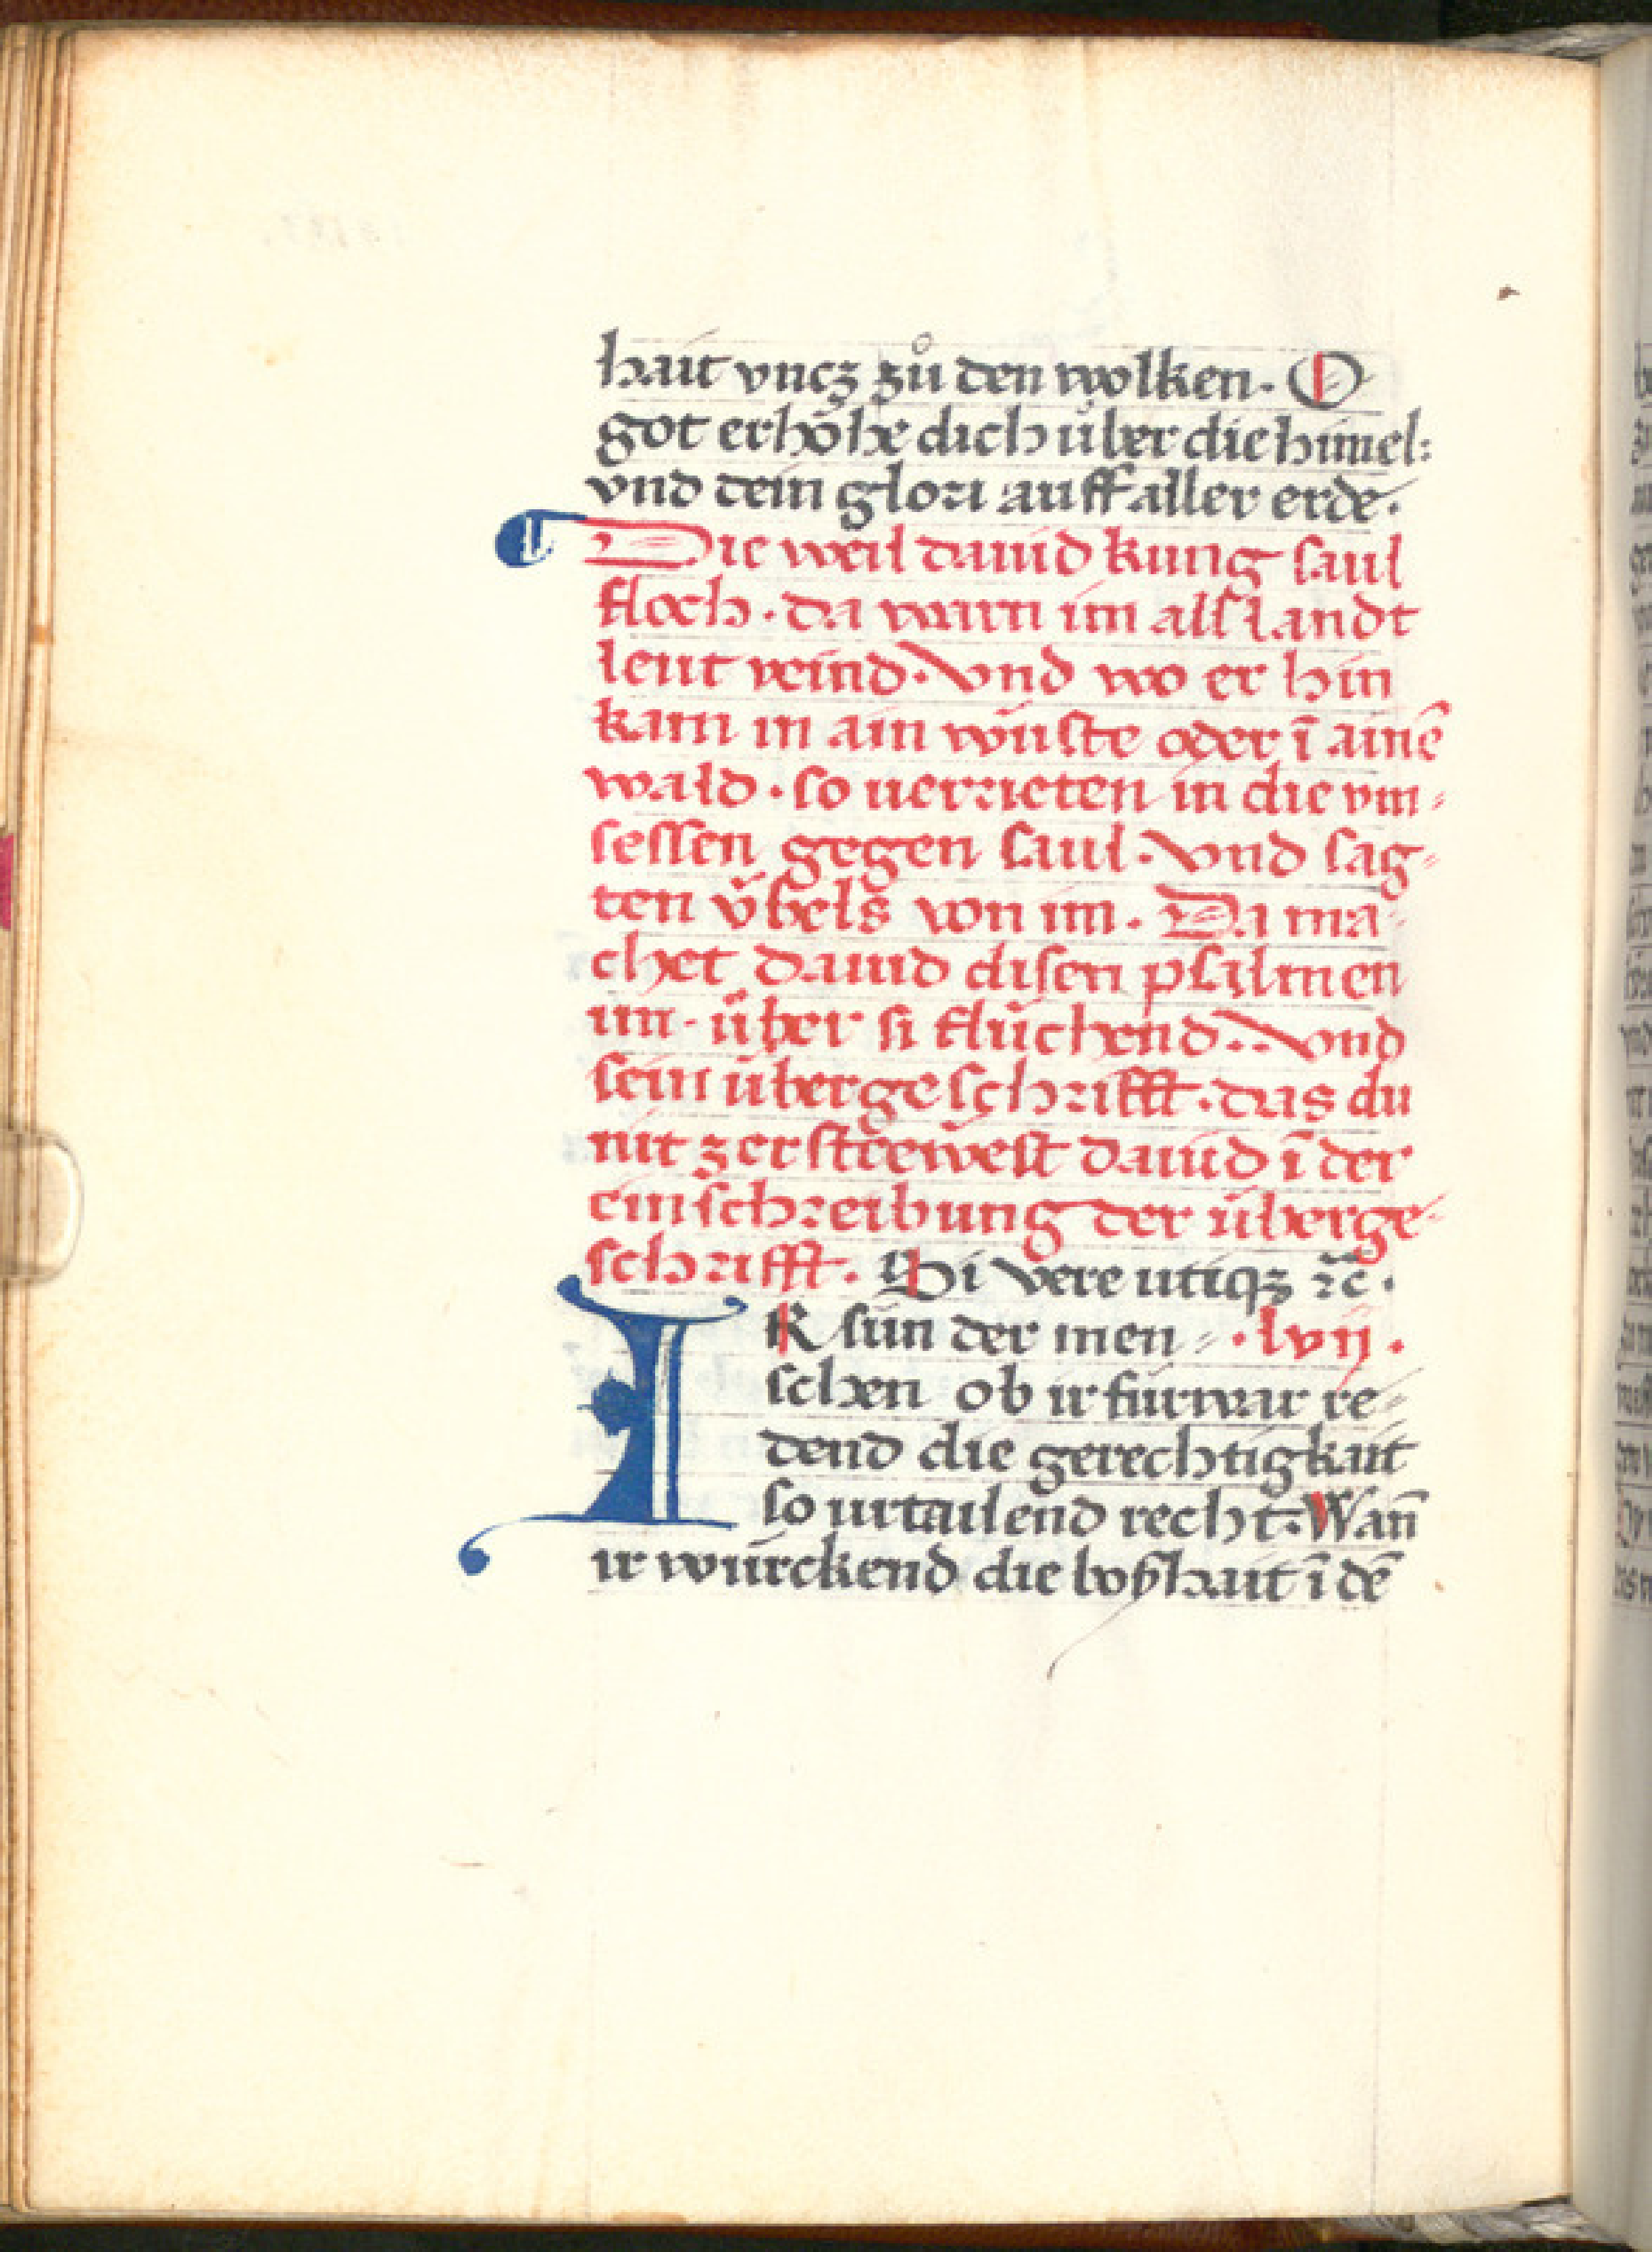 hait vncz zuͦ den wolken. O
got erhöhe dich über die himel:
vnd dein glori auff aller erde.
Die weil dauid kung saul
floch. da warn im all landt
leut veind. Vnd wo er hin
kam in ain wüste oder ī ainē
wald. so uerrieten in die vm-
sessen gegen saul. Vnd sag-
ten v̈bels von im. Da ma-
chet dauid disen psalmen
im. über si fluchend. Vnd
sein übergeschrifft. das du
nit zerströwest dauid ī der
einschreibung der überge-
schrifft. Si vere utiqꝫ ꝛc̄.
IR sun der men- .lvij.
schen ob ir fürwar re-
dend die gerechtigkait
so urtailend recht. Wan̄
ir würckend die boßhait ī dē